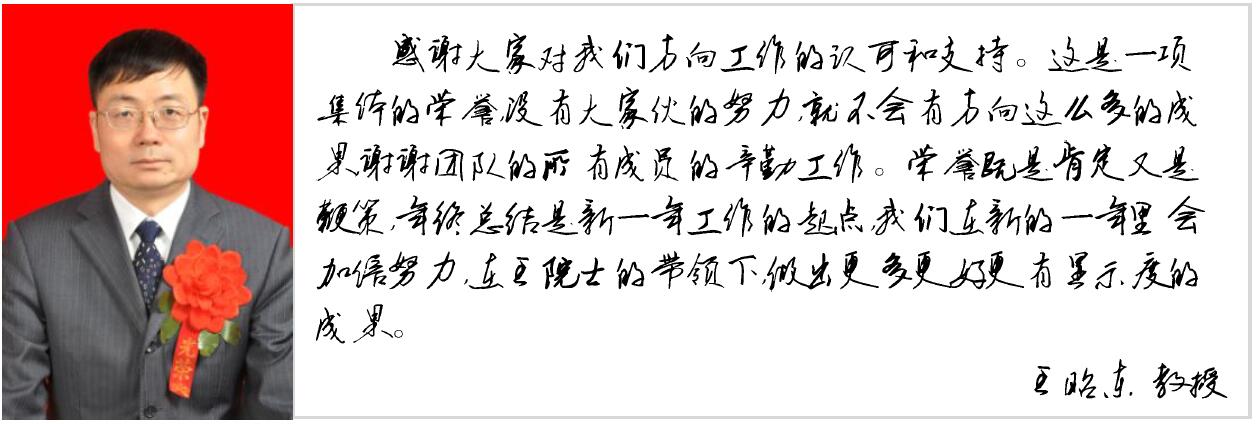 感谢大家对我们方向工作的认可和支持。这是一项
集体的荣誉,没有大家伙的努力,就不会有方向这么多的成
果,谢谢团队的所有成员的辛勤工作。荣誉既是肯定又是
鞭策,年终总结是新一年工作的起点,我们在新的一年里会
加倍努力,在王院士的带领下,做出更多更好更有显示度的
成果。
王昭东 教授
光荣